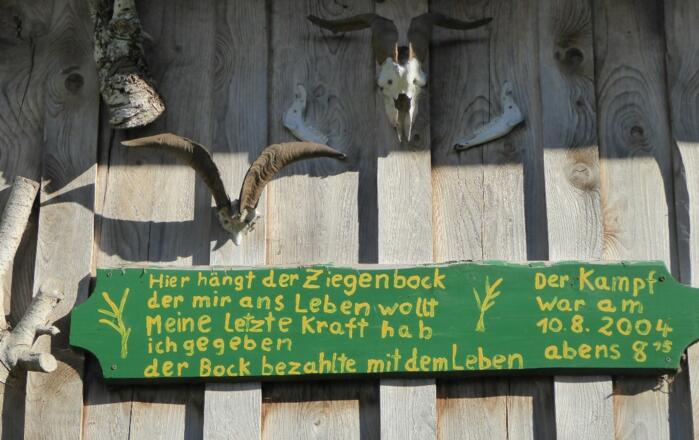 Hier hängt der Ziegenbock
der mir ans Leben wollt
Meine letzte Kraft hab
ich gegeben
der Bock bezahlte mit dem Leben
Der Kampf
war am
10.8.2004
abens 8¹⁵